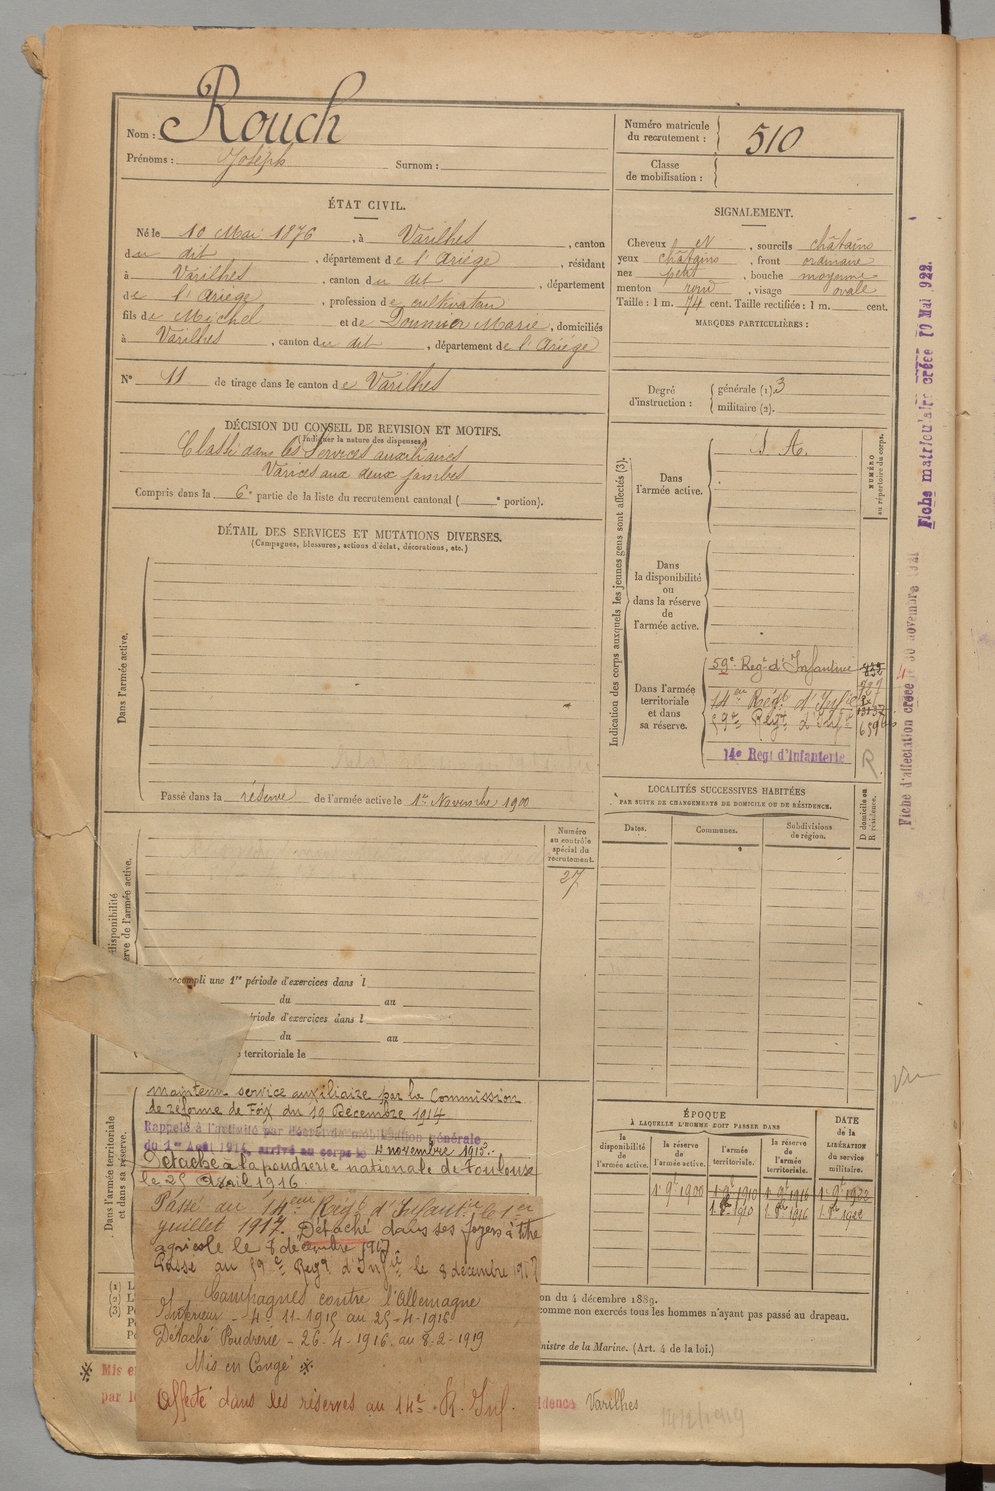 Nom : Rouch
Prénoms : Joseph Surnom :
Numéro matricule du recrutement : 510
Classe de mobilisation :
ÉTAT CIVIL.
Né le 10 Mai 1876, à Varilhes, canton
du dit, département de l'Ariège, résidant
à Varilhes, canton du dit, département
de l'Ariège, profession de cultivateur
fils de Michel et de Marie, domiciliés
à Varilhes, canton du dit, département de l'Ariège
N° 11 de tirage dans le canton de Varilhes
SIGNALEMENT.
Cheveux et, sourcils châtains
yeux châtains, front ordinaire
nez petit, bouche moyenne
menton rond, visage ovale
Taille : 1 m. 74 cent. Taille rectifiée : 1 m. cent.
MARQUES PARTICULIÈRES :
Degré d'instruction : générale (1). 3
militaire (2).
DÉCISION DU CONSEIL DE REVISION ET MOTIFS.
(Indiquer la nature des dispenses.)
Classé dans les Services auxiliaires
Varices aux deux jambes
Compris dans la 6e partie de la liste du recrutement cantonal ( e portion).
DÉTAIL DES SERVICES ET MUTATIONS DIVERSES.
(Campagnes, blessures, actions d'éclat, décorations, etc.)
Dans l'armée active.
Passé dans la réserve de l'armée active le 1er Novembre 1900
Indication des corps auxquels les jeunes gens sont affectés (3).
NUMÉRO au répertoire du corps.
Dans l'armée active.
S. A.
Dans la disponibilité ou dans la réserve de l'armée active.
Dans l'armée territoriale et dans sa réserve.
59e Regt d'Infanterie
14eme Régt d'Infie
59e Regt d'Infie
14e Regt d'Infanterie
R
LOCALITÉS SUCCESSIVES HABITÉES
PAR SUITE DE CHANGEMENTS DE DOMICILE OU DE RÉSIDENCE.
Dates. Communes. Subdivisions de région.
D domicile ou R résidence.
Numéro au contrôle spécial du recrutement.
27
disponibilité
erve de l'armée active.
accompli une 1re période d'exercices dans l
du au
ériode d'exercices dans l
du au
territoriale le
Dans l'armée territoriale et dans sa réserve.
maintenu service auxiliaire par la Commission
de réforme de Foix du 19 Décembre 1914
Rappelé à l'activité par décret de mobilisation générale,
du 1er Août 1914, arrivé au corps le 4 novembre 1915.
Détaché à la poudrerie nationale de Toulouse
le 25 Avril 1916.
Passé au 14eme Régt d'Infantie le 1er
juillet 1917. Détaché dans ses foyers à titre
agricole le 8 décembre 1917
Passé au 59e Regt d'Infie le 8 décembre 1917
Campagnes contre l'Allemagne
Intérieur - 4-11-1915 au 25-4-1916
Detaché Poudrerie - 26-4-1916 au 8-2-1919
Mis en Congé ※
Affecté dans les réserves au 14e R. Inf.
ÉPOQUE
À LAQUELLE L'HOMME DOIT PASSER DANS
la disponibilité de l'armée active.
la réserve de l'armée active.
l'armée territoriale.
la réserve de l'armée territoriale.
DATE de la LIBÉRATION du service militaire.
1er 9bre 1900 1er 9bre 1910 1er 9bre 1916 1er 9bre 1922
1er 8bre 1910 1er 8bre 1916 1er 8bre 1922
on du 4 décembre 1889.
comme non exercés tous les hommes n'ayant pas passé au drapeau.
nistre de la Marine. (Art. 4 de la loi.)
※ Mis e
par l
idence Varilhes
14/2/1919
Fiche d'affectation créée le 30 novembre 1921
Fiche matriculaire créée 10 Mai 1922.
Vu